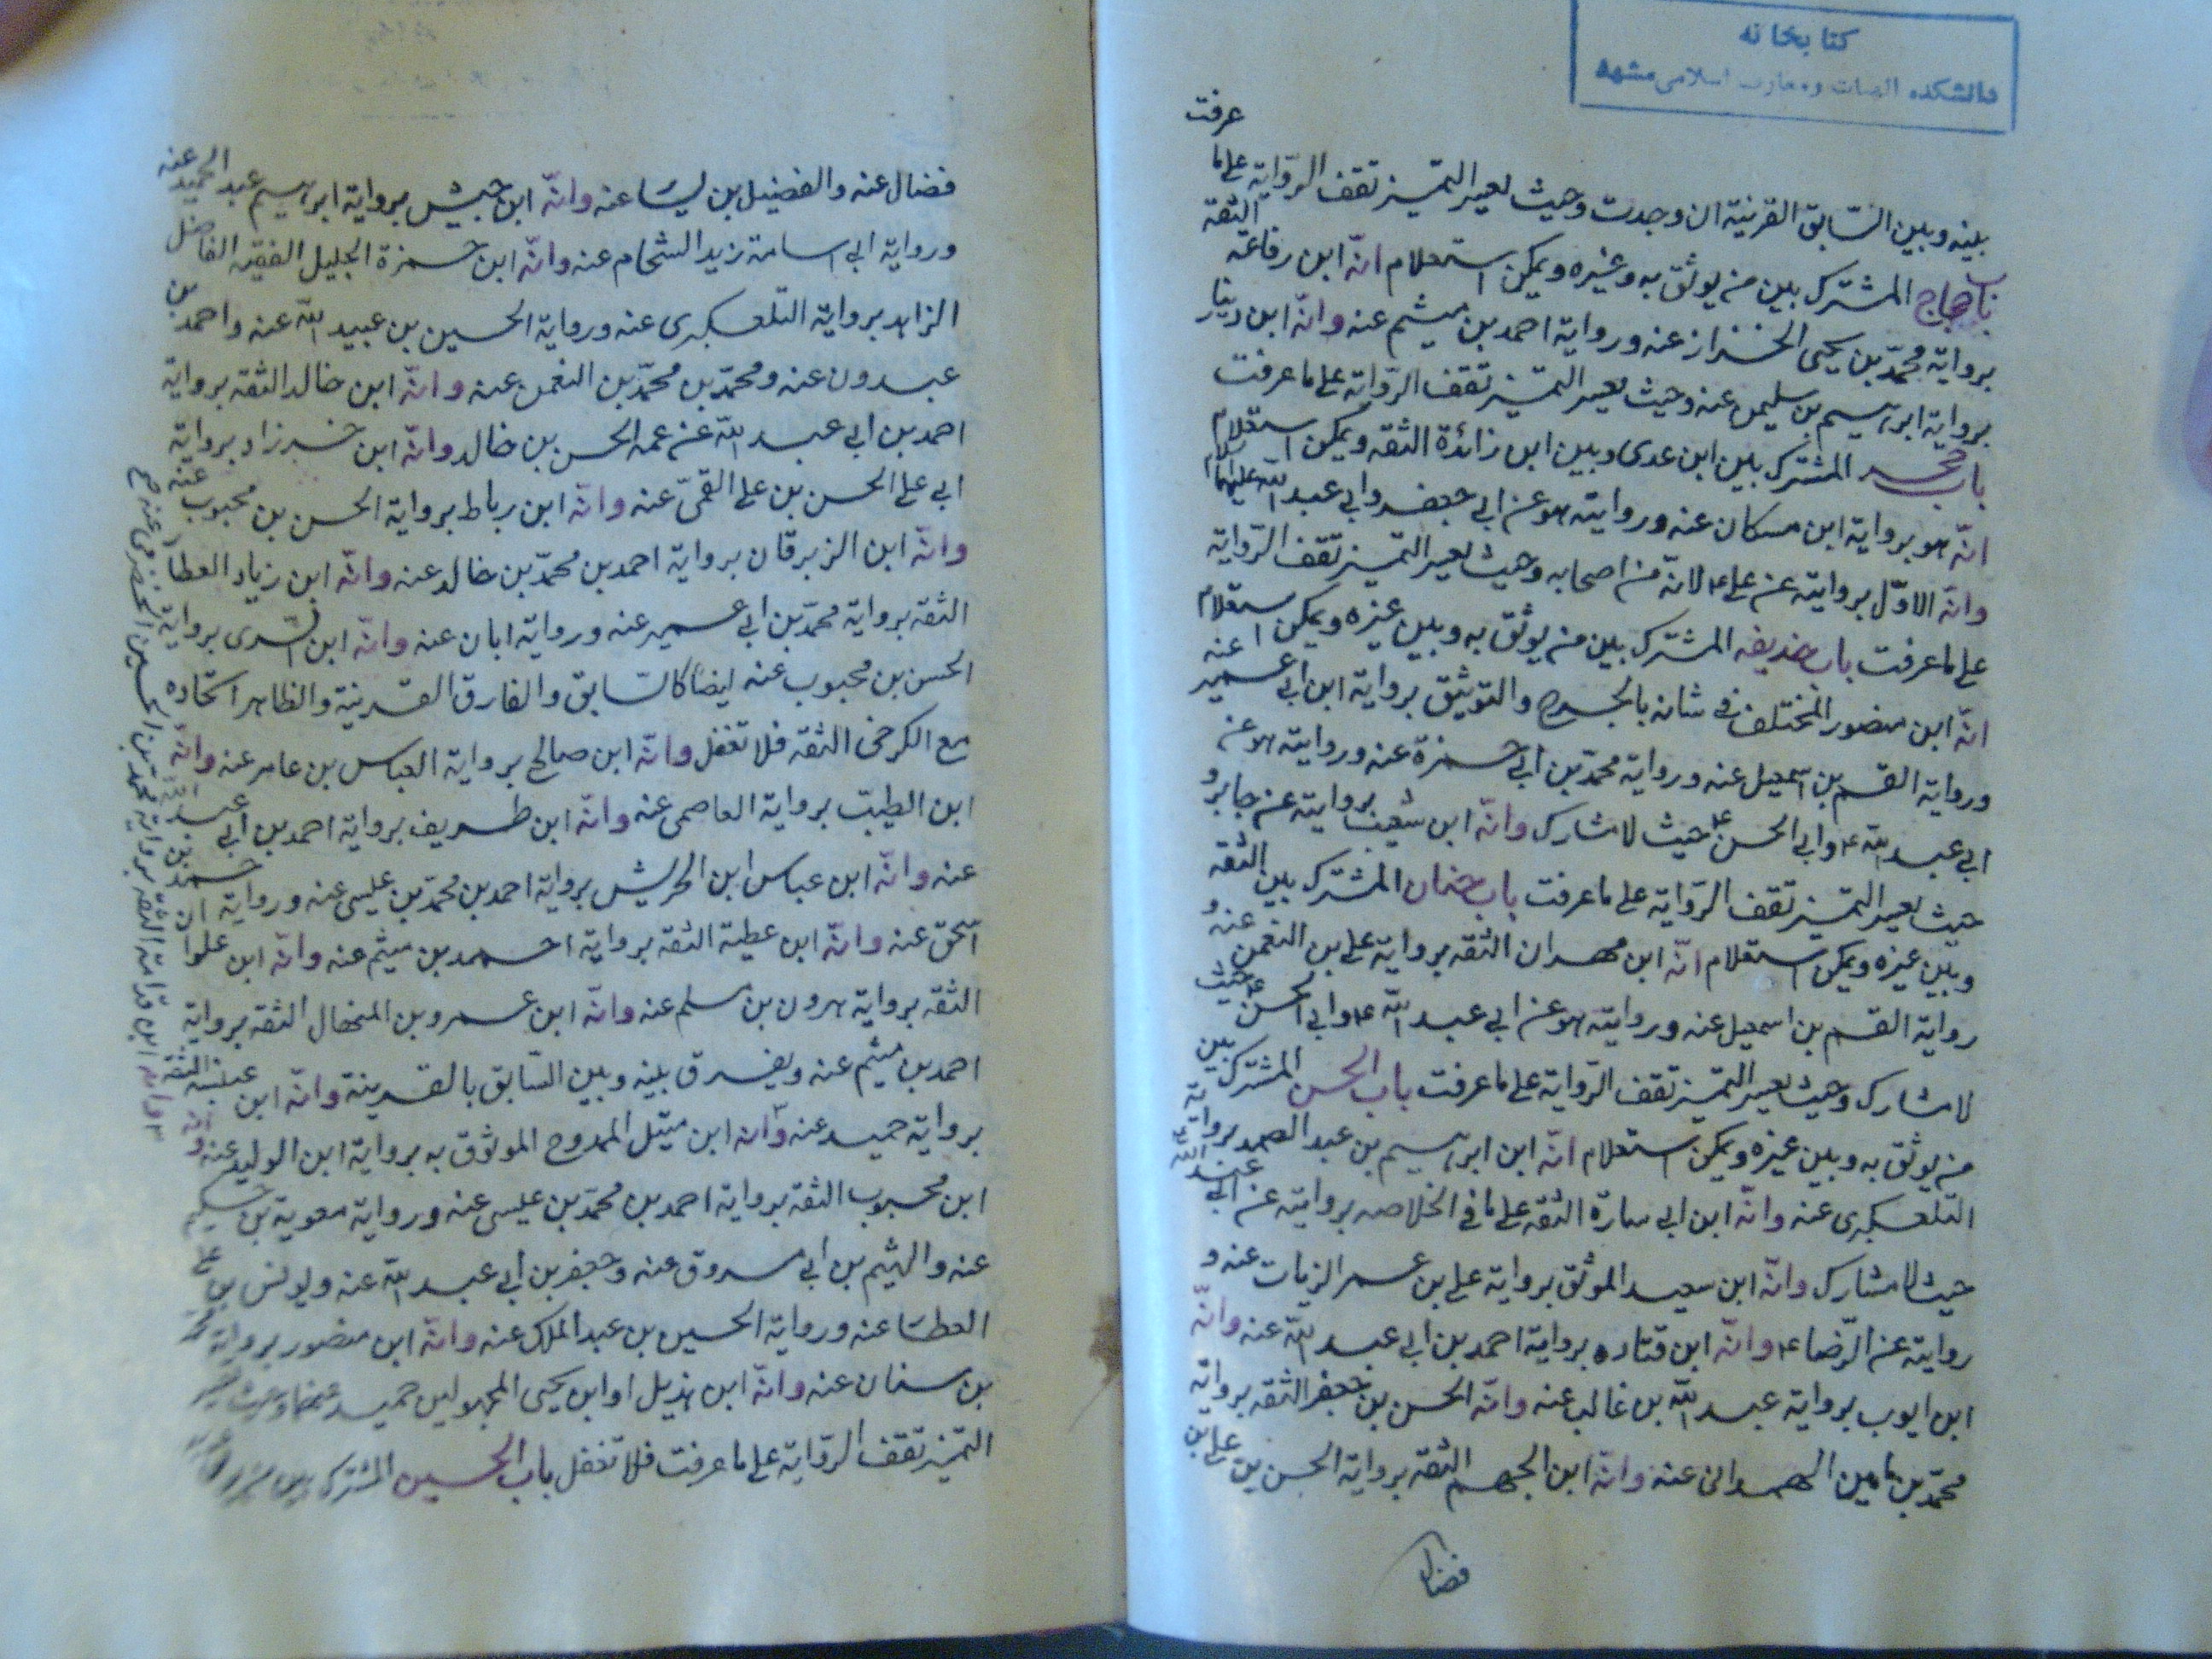 كتابخانه
دانشكده الهيات ومعارف اسلامى مشهد
بينه وبين السّابق القرينة ان وجدت وحيث يعسر التميز تقف الرّواية على ما عرفت
باب حجاج المشترك بين من يوثق به وغيره ويمكن استعلام انّه ابن رفاعة الثقة
برواية محمّد بن يحيى الخزاز عنه ورواية احمد بن ميثم عنه وانّه ابن دينار
برواية ابرهيم بن سليمن عنه وحيث يعسر التميز تقف الرّواية على ما عرفت
باب حجر المشترك بين ابن عدى وبين ابن زائدة الثقه ويمكن استعلام
انّه هو برواية ابن مسكان عنه وروايته هو عن ابي جعفر وابي عبد الله عليهما السلام
وانّه الاوّل بروايته عن على ع لانّه من اصحابه وحيث يعسر التميز تقف الرّواية
على ما عرفت باب حذيفه المشترك بين من يوثق به وبين غيره ويمكن استعلام
انّه ابن منصور المختلف في شانه بالجرح والتوثيق برواية ابن ابي عمير عنه
ورواية القسم بن اسمعيل عنه ورواية محمّد بن ابي حمزة عنه وروايته هو عن
ابي عبد الله ع وابي الحسن ع حيث لا مشارك وانّه ابن شعيب بروايته عن جابر و
حيث يعسر التميز تقف الرّواية على ما عرفت باب حنان المشترك بين الثقه
وبين غيره ويمكن استعلام انّه ابن مهران الثقه برواية على بن النعمن عنه و
رواية القسم بن اسمعيل عنه وروايته هو عن ابي عبد الله ع وابي الحسن ع حيث
لا مشارك وحيث يعسر التميز تقف الرّواية على ما عرفت باب الحسن المشترك بين
من يوثق به وبين غيره ويمكن استعلام انّه ابن ابرهيم بن عبد الصمد برواية
التلعكبرى عنه وانّه ابن ابي سارة الثقه على ما في الخلاصه بروايته عن ابي عبد الله
حيث لا مشارك وانّه ابن سعيد الموثق برواية على بن عمر الزيات عنه و
روايته عن الرّضا ع وانّه ابن قتاده برواية احمد بن ابي عبد الله عنه وانّه
ابن ايوب برواية عبد الله بن غالب عنه وانّه الحسن بن جعفر الثقه برواية
محمّد بن مامين الهمدانى عنه وانّه ابن الجهم الثقه برواية الحسن بن على بن
فضال
فضال عنه والفضيل بن يسا عنه وانّه ابن حبيش برواية ابرهيم عبد الحميد عنه
ورواية ابي اسامة زيد الشحام عنه وانّه ابن حمزة الجليل الفقيه الفاضل
الزاهد برواية التلعكبرى عنه ورواية الحسين بن عبيد الله عنه واحمد بن
عبدون عنه ومحمّد بن محمّد بن النعمن عنه وانّه ابن خالد الثقه برواية
احمد بن ابي عبد الله عن عمه الحسن بن خالد وانّه ابن خرزاد برواية
ابي على الحسن بن على القمىّ عنه وانّه ابن رباط برواية الحسن بن محبوب عنه
وانّه ابن الزبرقان برواية احمد بن محمّد بن خالد عنه وانّه ابن زياد العطار
الثقه برواية محمّد بن ابي عمير عنه ورواية ابان عنه وانّه ابن السّرى برواية
الحسن بن محبوب عنه ايضا كالسّابق والفارق القرينة والظاهر اتحاده
مع الكرخى الثقه فلا تغفل وانّه ابن صالح برواية العباس بن عامر عنه وانّه
ابن الطيب برواية العاصمى عنه وانّه ابن طريف برواية احمد بن ابي عبد الله
عنه وانّه ابن عباس ابن الحريش برواية احمد بن محمّد بن عيسى عنه ورواية احمد بن
اسحق عنه وانّه ابن عطية الثقه برواية احمد بن ميثم عنه وانّه ابن علوان
الثقه برواية هرون بن مسلم عنه وانّه ابن عمرو بن المنهال الثقه برواية
احمد بن ميثم عنه ويفرق بينه وبين السّابق بالقرينة وانّه ابن عنبسه الثقه
برواية حميد عنه وانّه ابن متيل الممدوح الموثوق به برواية ابن الوليد عنه وانّه
ابن محبوب الثقه برواية احمد بن محمّد بن عيسى عنه ورواية معوية بن حكيم
عنه والهيثم بن ابي مسروق عنه وجعفر بن ابي عبد الله عنه ويونس بن على
العطا عنه ورواية الحسين بن عبد الملك عنه وانّه ابن منصور برواية محمد
بن سنان عنه وانّه ابن هذيل او ابن يحيى المجهولين حميد عنهما وحيث يعسر
التميز تقف الرّواية على ما عرفت فلا تغفل باب الحسين المشترك بين من
وانه ابن قدامة الثقه برواية محمّد بن الحسين الحضرمى عنه صح